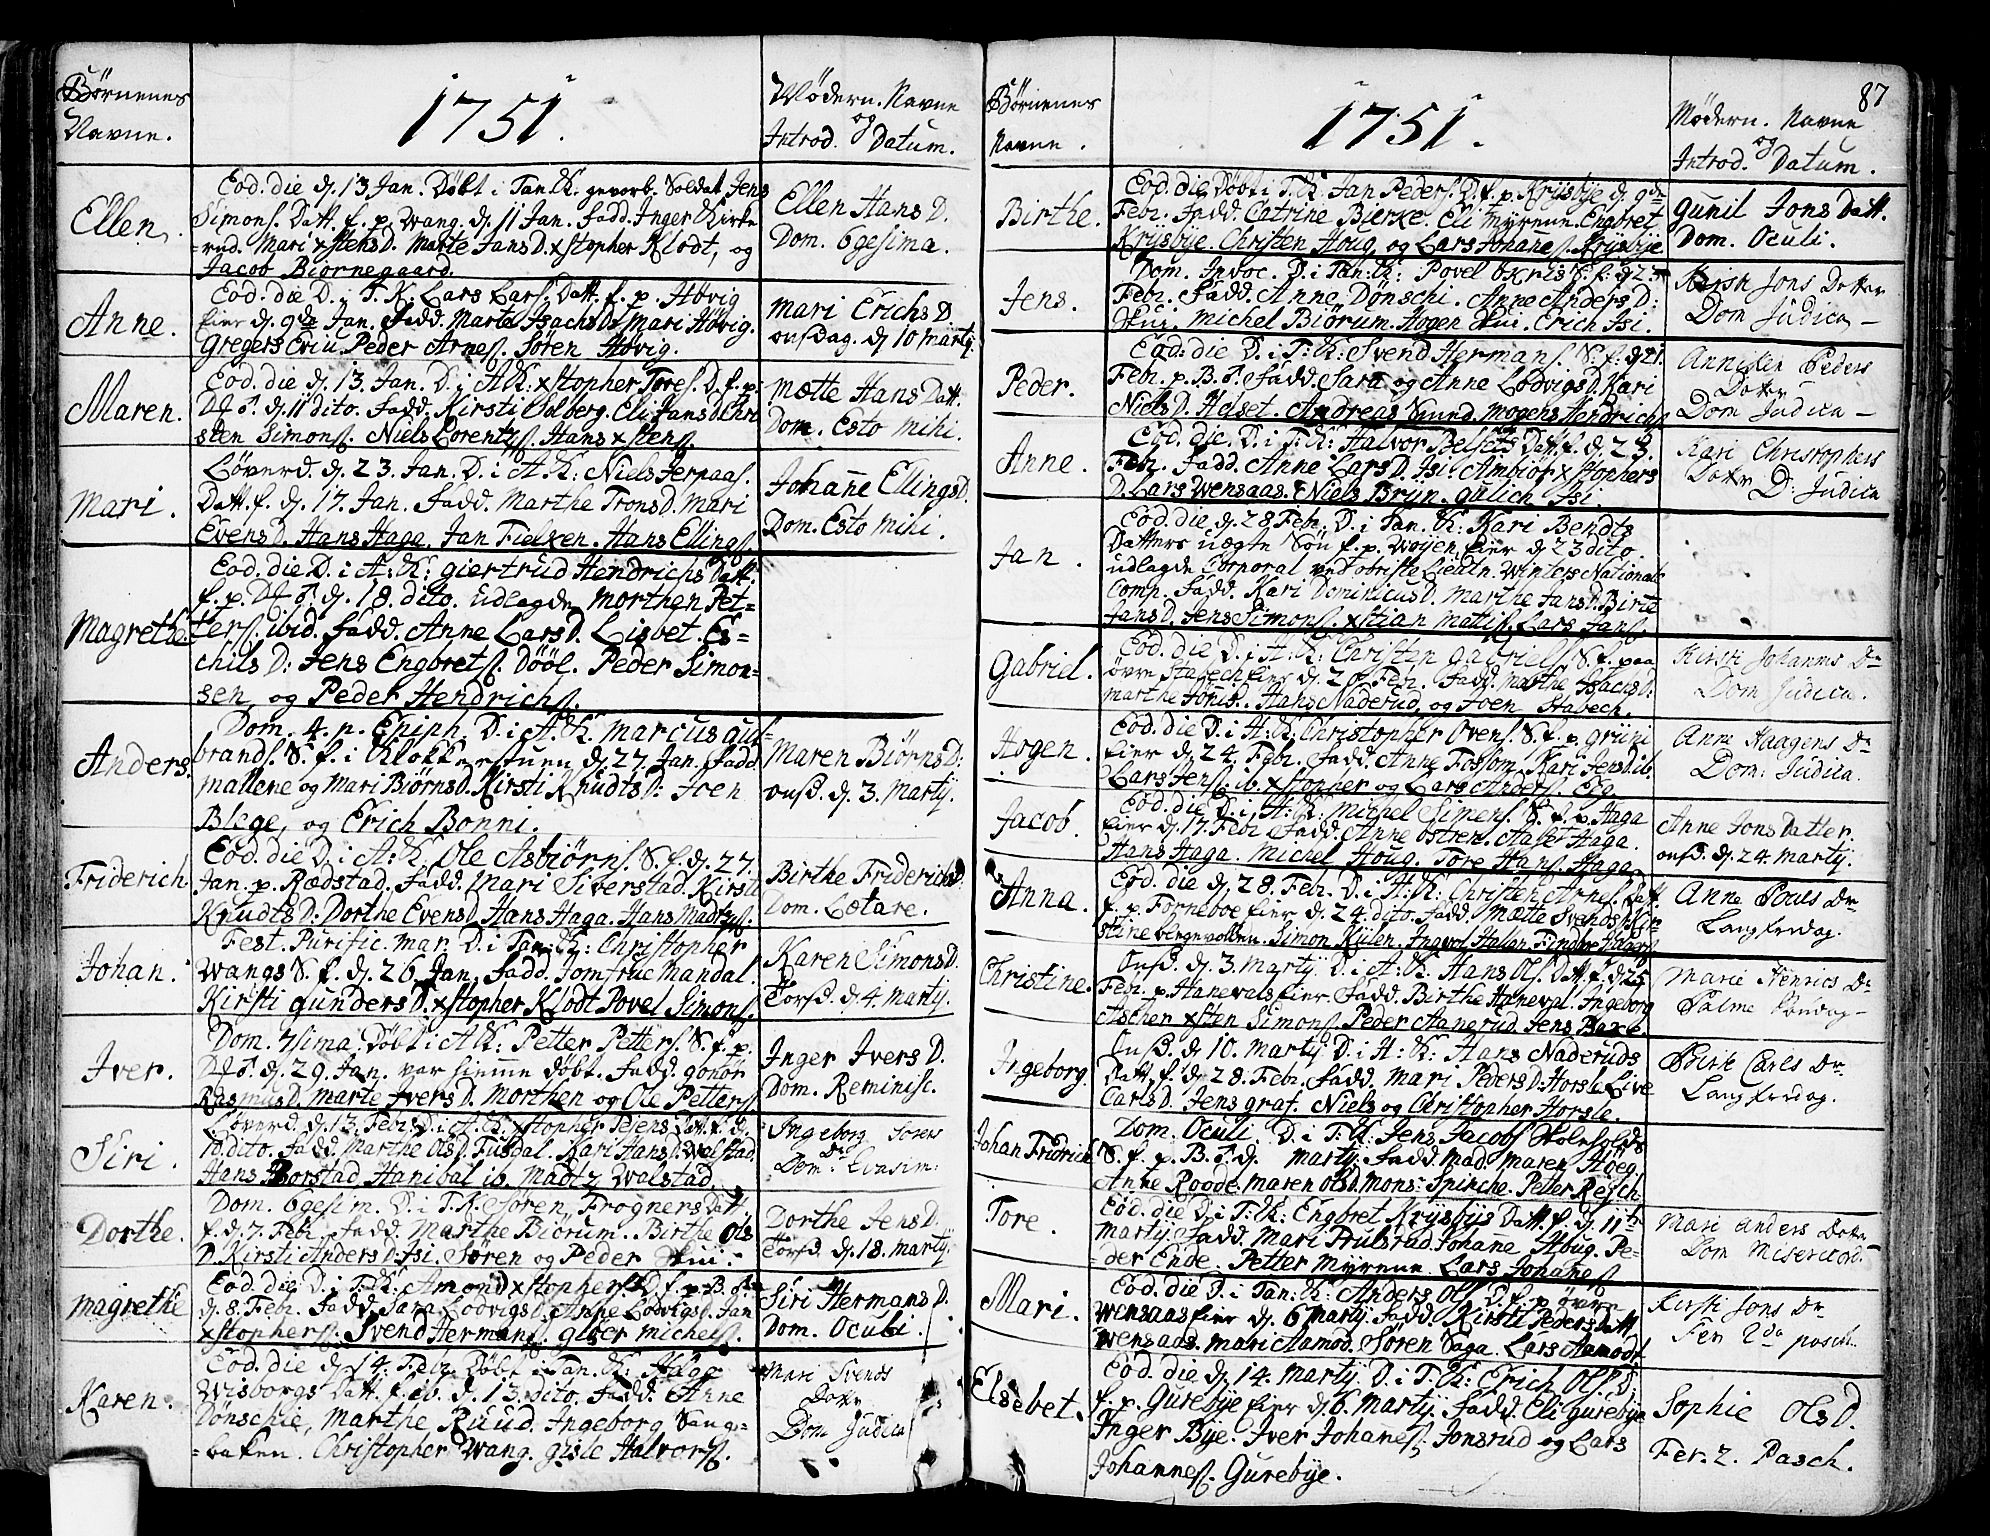 Børnenes
Navne.
1751.
Mødern. Navne
og
Introd. Datum.
Ellen.
Eod. die d. 13 Jan. Døbt i Tan. K. gevorb. Soldat Jens
Simons. Datt. f. p. Wang. d. 11 Jan. Fadd. Inger Kirke
=rud. Mari xstensD. Marte JansD. xstopher Klodt, og
Jacob Biørnegaard.
Ellen Hans D.
Dom. 6gesima.
Anne.
Eod. die D. i T. K. Lars Lars. Datt. f. p. Høvig
eier d. 9de Jan. Fadd. Marte Isachs D. Mari Høvig.
Gregers Evju Peder Arnes. Søren Høvig.
Mari Erichs D.
onsdag. d 10 Marty.
Maren.
Eod. die d. 13. Jan. D. i A. K: xstopher Tores. D. f. p.
d. 11 dito. Fadd. Kirsti Solberg. Eli JansD. Chri
sten Simons. Niels Lorentzs. Hans xstens.
Mætte Hans Datt.
Dom. Esto mihi.
Mari.
Løverd. d. 23. Jan. D. i A. K: Niels Jerpaas.
Datt. f. d. 17. Jan. Fadd. Marthe TronsD. Mari
EvensD. Hans Haga. Jan Fielxen. Hans Ellings.
Johañe EllingsD.
Dom. Esto mihi.
Magrethe.
Eod. die D. i A: K: Giertrud Hendrichs Datt.
f. p. d. 18. dito. udlagde Morthen Pet=
ters. ibid. Fadd. Anne LarsD. Lisbet Es=
chils D: Jens Engbrets. Døøl. Peder Simon=
sen, og Peder Hendrichs.
Anders.
Dom. 4. p. Epiph. D. i A. K. Marcus Gul=
brands. S. f. i Klokkerstuen d. 27. Jan. Fadd.
Mallene og Mari BiørnsD. Kirsti KnudtsD: Joen
Blege, og Erich Bonni.
Maren BiørnsD:
onsd. d. 3. Marty.
Friderich
Eod. die D. i A: K. Ole Asbiørns. S. f. d. 27.
Jan. p. Rædstad. Fadd. Mari Siverstad. Kirsti
KnudtsD: Dorthe EvensD. Hans Haga. Hans Madtzs.
Birthe FriderichsD.
Dom. Lætare.
Johan.
Fest. Purific. Mar. D. i Tan. K: Christopher
Wangs S. f. d. 26. Jan. Fadd. Jomfrue Mandal.
Kirsti GundersD. xstopher Klodt. Povel Simons.
Karen SimonsD.
Torsd. d. 4. Marty.
Iver.
Dom. 7sima. Døbt i A. K: Petter Petters. S. f. p.
d. 29. Jan. var hiemme døbt. Fadd. Gonor
RasmusD. Marte IversD. Morthen og Ole Petters.
Inger Ivers D.
Dom. Reminisc.
Siri.
Løverd. d. 13. Febr. D. i A. K. xstopher Pejens Datt. f. d.
10 dito. Fadd. Marthe OlsD. Fusdal. Kari HansD. Walstad.
Hans Borstad. Hanibal ib. Madtz Walstad.
Ingeborg Sørens
Dr
Dom: Qvasim:
Dorthe.
Dom. 6gesim. D. i T. K. Søren Frogners Datt.
f. d. 7. Febr. Fadd. Marthe Biørum. Birthe Ols
D. Kirsti AndersD. Isi. Søren og Peder Skui.
Dorthe JensD.
Torsd. d. 18. Marty.
Magrethe
Eod. die D. i T. K. Amond xstophers. D. f. p. B.
d. 8. Febr. Fadd. Sara LodvigsD. Anne LodvigsD. Jan
xstophers. Svend Hermans. Giver Michels.
Siri Hermans D.
Dom. Oculi.
Karen.
Eod. die d. 14. Febr. Døbt i Tan. K:
Wisborgs Datt. f. ib. d. 13. dito. Fadd. Anne
Dønschie, Marthe Ruud. Ingeborg Sang=
=baken. Christopher Wang. Gisle Halvors.
Mari Svends
Datter
Dom Judica
87
Børnenes
Navne.
1751.
Mødern. Navne
og
Introd. Datum.
Birthe.
Eod. die Døbt i T. K: Jan Peders. D. f. p. Krysbye d. 9de
Febr. Fadd. Catrine Bierke. Eli Myrene. Engbret
Krysbye. Christen Houg, og Lars Johanes. Krysbye.
Gunil Jons Datt.
Dom. Oculi.
Jens.
Dom. Invoc. D. i Tan: K: Povel S. f. d 23
Febr. Fadd. Anne Dønschi. Anne Anders D:
Skui. Michel Biørum. Hogen Skui. Erich Isi.
Kirsti Jons Datter
Dom Judica —
Peder.
Eod: die D. i T: K: Svend Hermans. S. f. d 21.
Febr. p. B. Fadd. Sara og Anne LodvigsD. Kari
NielsD. Helset. Andreas Smed. Mogens Hendrichs.
Anniken Peders
Datter
Dom Judica —
Anne.
Eod. die. D. i T: K: Halvor Belsets Datt. f. d. 23.
Febr. Fadd. Anne LarsD. Isi. Ambiør xstophers
D. Lars Wensaas. Niels Brun. Gulich Isi.
Kari Christophers
Datter D: Judica
Jan.
Eod. die d. 28. Febr. D. i Tan. K: Kari Bendts
Datters uægte Søn f. p. Woyen eier d 23 dito.
udlagde Corporal ved obriste Lieutn. Winters National
Comp. Fadd. Kari DominicusD. Marthe JansD. Birte
JansD. Jens Simons. xstian Matis. Lars Jans.
Gabriel.
Eod. die D. i H: K: Christen Gabriels. S. f. paa
øvre Stabech eier d. 20. Febr. Fadd. Marthe IsachsD.
Marthe JonisD. Hans Naderud, og Joen Stabech.
Kirsti Johanns Dr
Dom Judica.
Hogen.
Eod. die D. i H: K: Christopher Ovens. S. f. p. Griini
eier d. 24. Febr. Fadd. Anne Fossom. Kari JensD. ib.
Lars Jens. ib. xstopher og Lars Anders.
Anne Haagens Dr
Dom: Judica.
Jacob.
Eod. die D. i H: K: Michel Simens. S. f. p. Haga
eier d. 17. Febr. Fadd. Anne Østren. Aaset Haga.
Hans Haga. Michel Houg. Tore Hans. Haga.
Anne Jons Datter.
onsd. d. 24. Marty.
Anna.
Eod. die d. 28. Febr. D. i H: K: Christen Arnes. Datt.
f. p. Forneboe eier d. 24. dito. Fadd. Mætte SvendsD. Chri=
stine Bergevolden. Simon Kiilen. Ingvol Hallen.
Anne Pouls Dr
Langfredag.
Christine.
Onsd. d. 3. Marty. D. i A: K. Hans Ols. Datt. f. d 25
Febr. p. Hanevals eier. Fadd. Birthe Haneval. Ingeborg
Ascher. xsten Simons. Peder Aanerud. Jens
Marie Henrics Dr
Palme Søndag —
Ingeborg.
Onsd. d 10. Marty D. i H: K: Hans Naderuds
Datt. f. d. 28. Febr. Fadd. Mari PedersD: Horsle. Live
CarlsD. Jens Graf. Niels og Christopher Horsle.
Birte Carls Dr.
Langfredag.
Johan Fridrich
Dom. Oculi. D. i T: K: Jens Jacobs.
S. f. p. B. d. Marty. Fadd. Mad. Maren Høeg.
Anne Roode. Maren OlsD. Mons: Spinche. Petter Resch
Tore.
Eod. die D. i T: K: Engbret Krysbys Datt. f. d. 11te
Marty. Fadd. Mari Frulsrud. Johañe Houg. Pe=
der Ende. Petter Myrene. Lars Johanes.
Mari Anders Datter
Dom Misericord.
Mari.
Eod. die D. i Tan: K: Anders Ols. D. f. p. øvre
Wensaas eier d. 6 Marty. Fadd. Kirsti Peders Datt
Wensaas. Mari Aamod. Søren Saga. Lars Aamodt.
Kirsti Jons Dr
Fer 2da pasch.
Elsebet.
Eod. die d. 14. Marty. D. i T: K: Erich Ols. D.
f. p. Gurebye eier d. 6. Marty. Fadd. Eli Gurebye.
Inger Bye. Iver Johanes. Jonsrud og Lars
Johannes. Gurebye.
Sophie OlsD.
Fer. 2. Pasch.